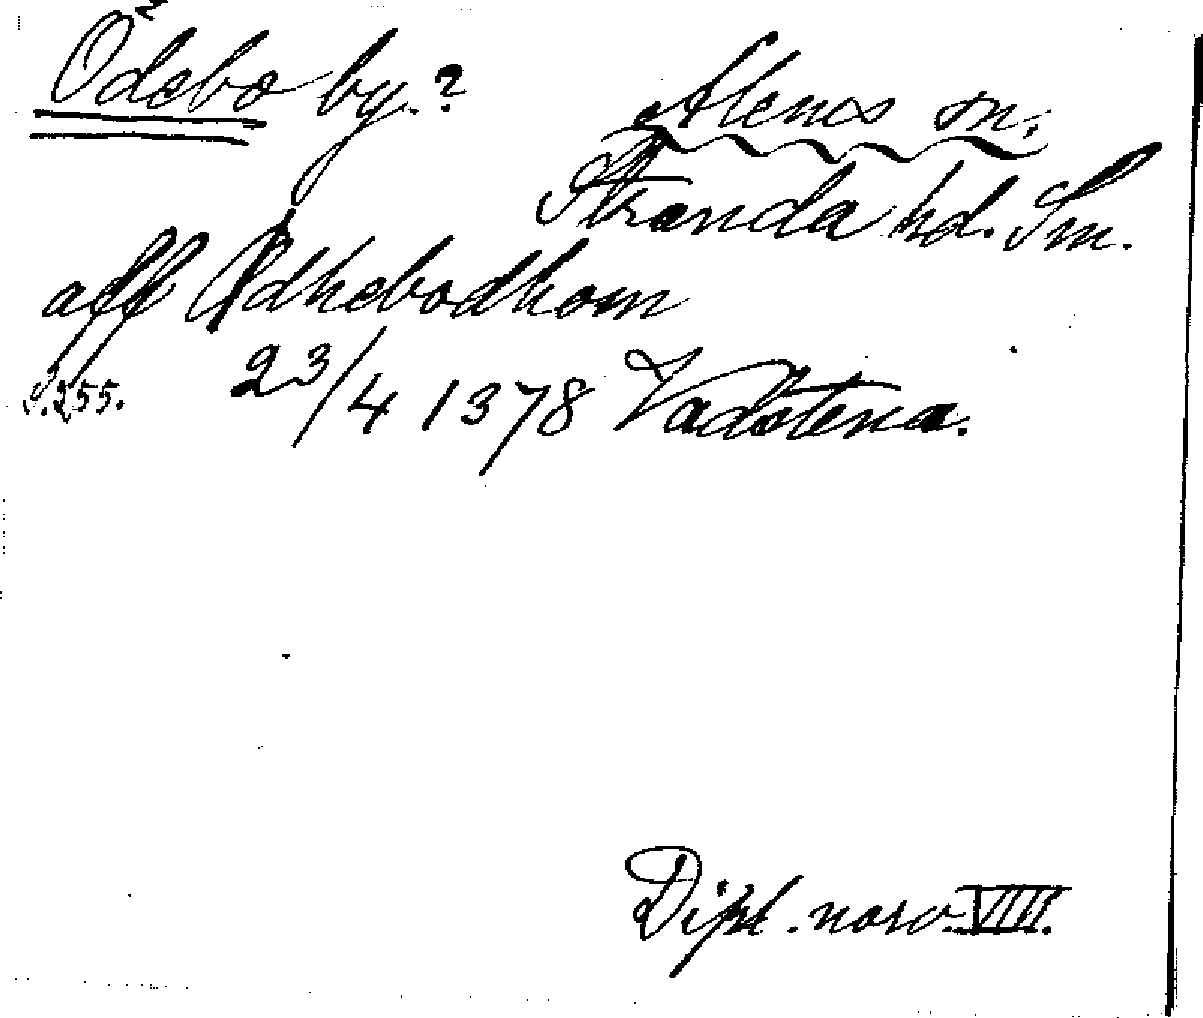 Ödebo by.?
Ålems sn.
Stranda hd. Sm.
aff Ødhebodhom
S. 255. 23/4 1378 Vadstena.
Dipl. norv. VIII.